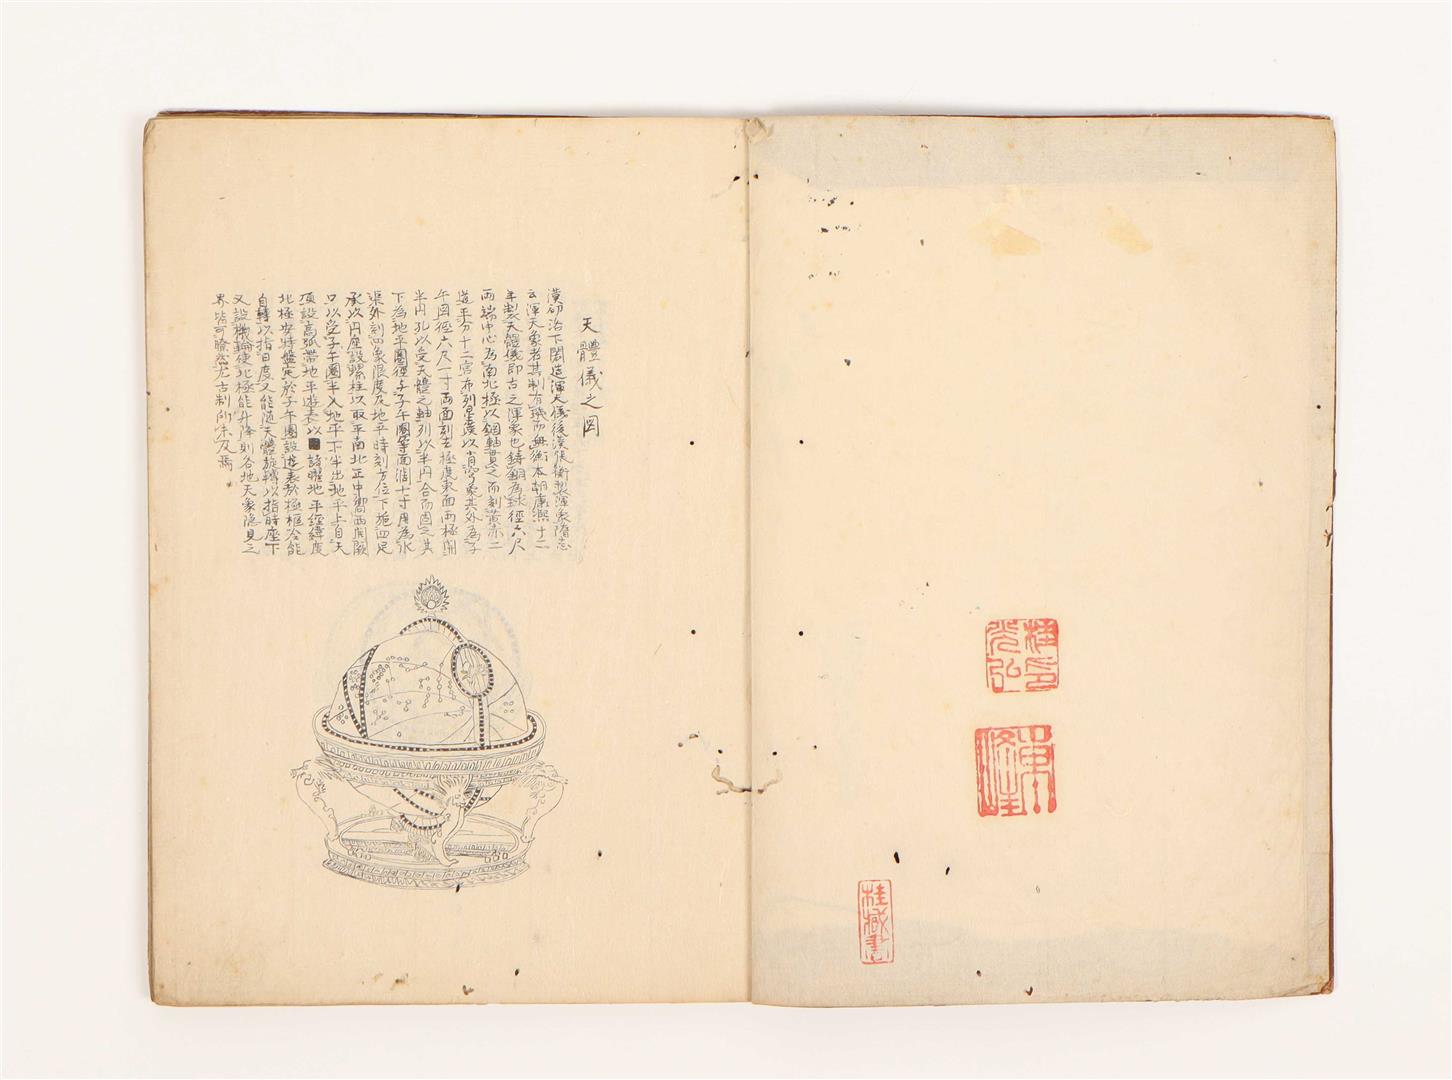 天體儀之図
漢初洛下閎造渾天儀後漢張衡製渾象隋志
云渾天象者其制有璣而無衡本朝康熙十二
年製天體儀即古之渾象也鋳銅為球徑六尺
両端中心為南北極以鋼軸貫之而刻黄赤二
道平分十二宮布列星漢以肖穹象其外為子
午圏徑六尺一寸両面刻去極度東面両極開
半円孔以受天體之軸列以半円合而固之其
下為地平圏徑子午圏等面濶七寸周為水
渠外刻四象限度及地平時刻方位下施四足
承以円座設螺柱以取平南北正中嚮西開厥
口以受子午圏半入地平下半出地平上自天
頂設高弧帯地平遊表以諸曜地平經緯度
北極安時盤定於子午圏設遊表於極樞冷能
自轉以指目度又能随天體旋轉以指時座下
又設機輪使北極能升降則各地天象隠見之
界皆可瞭然尤古制所未及焉
桂印
光弘
東
峰
桂蔵書